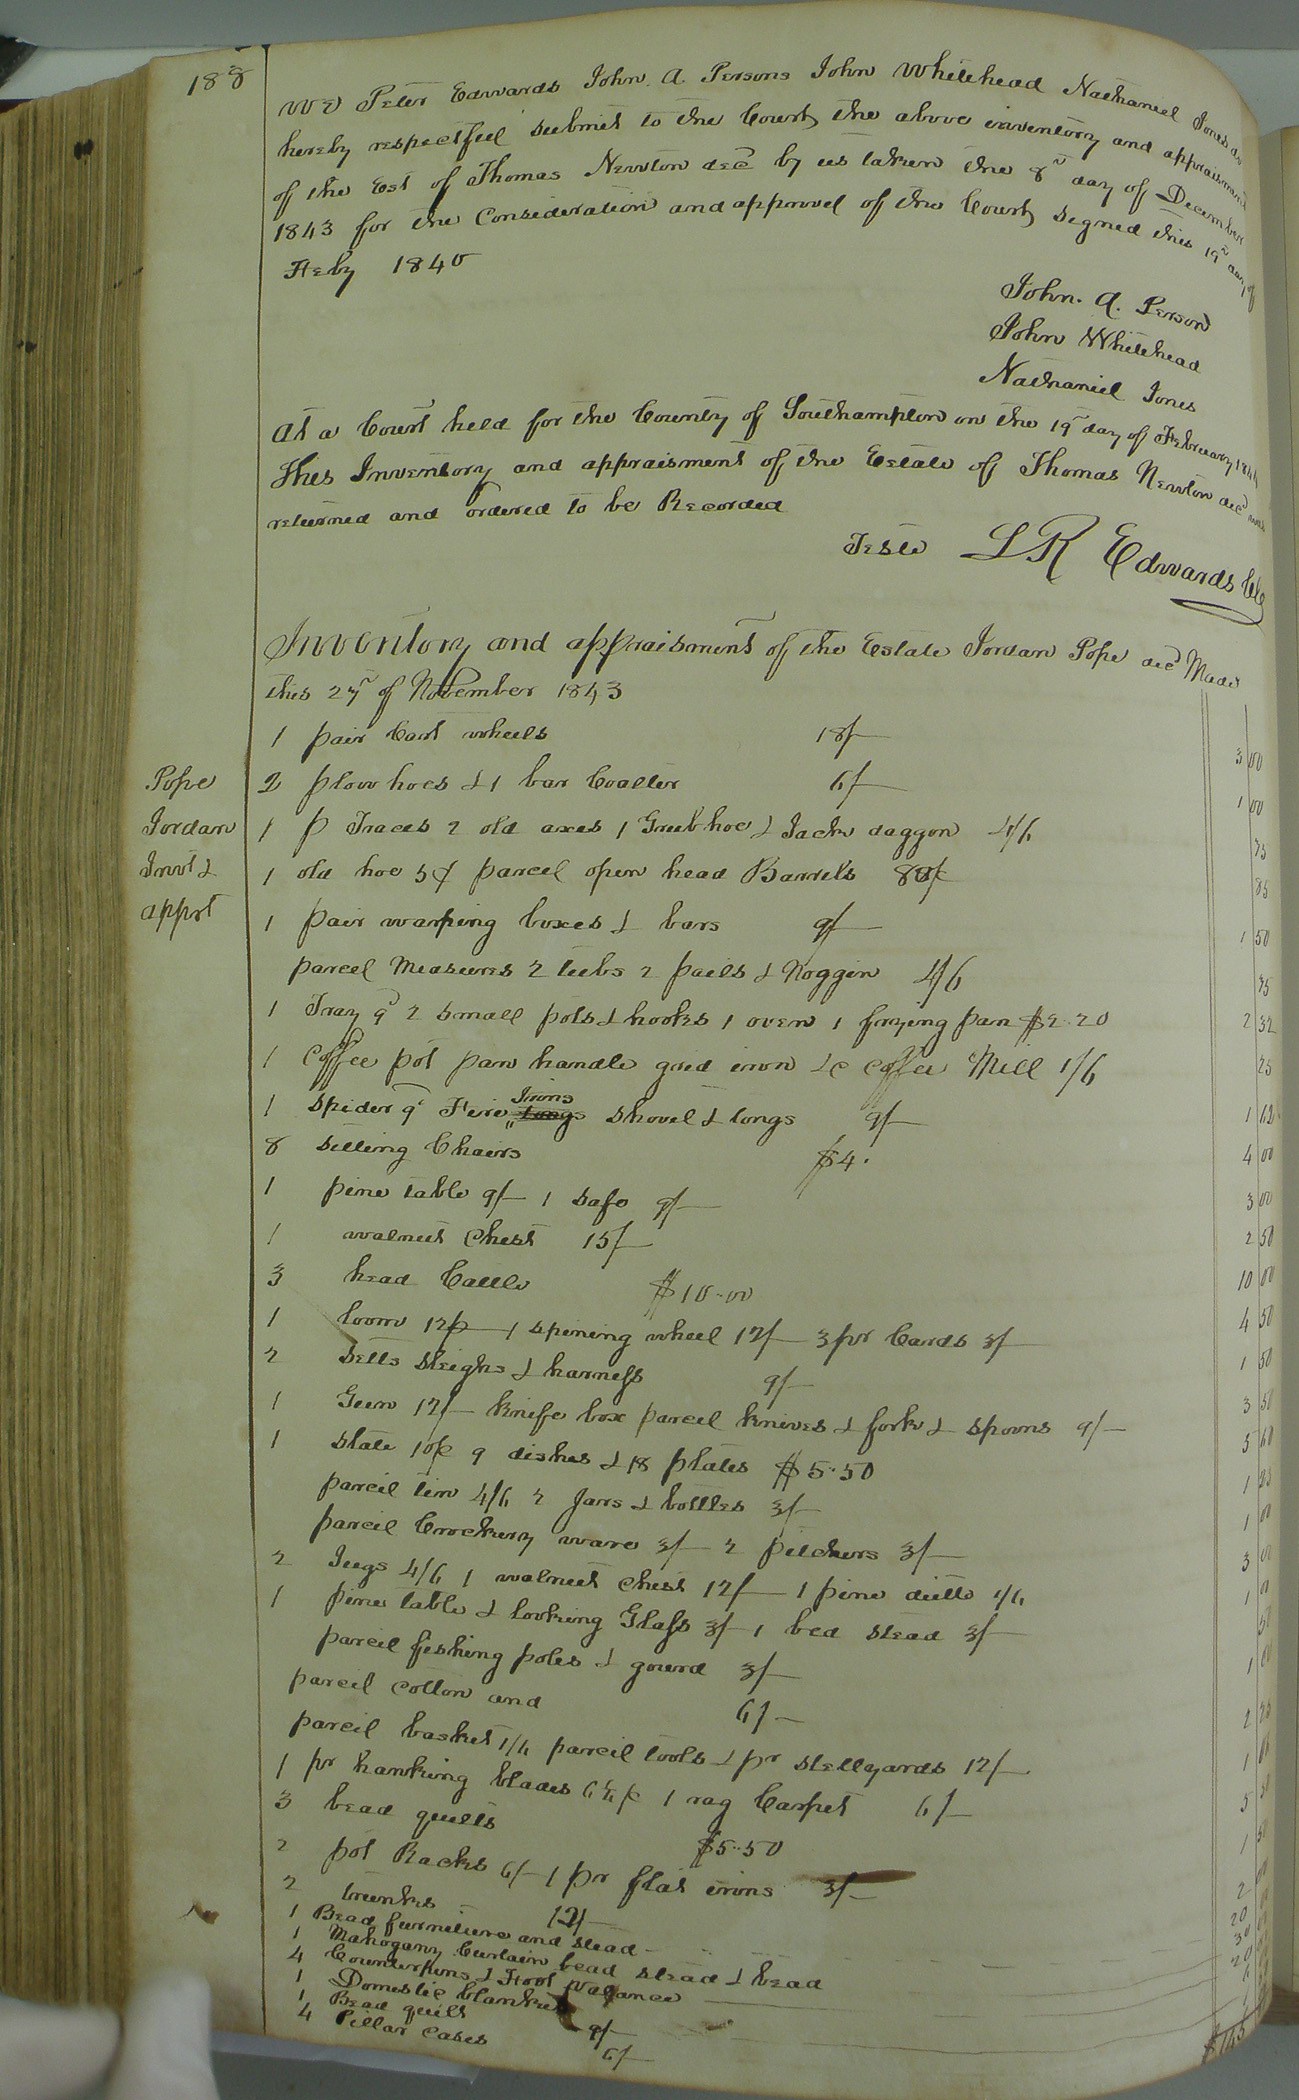 188
We Peter Edwards John. A. Persons John Whitehead Nathaniel Jones do
hereby respectful submit to the Court the above inventory and appraisment
of the Est of Thomas Newton decd by us taken the 8th day of December
1843 for the Consideration and approvel of the Court signed this 19th day of
Feby 1840
John. A. Person
John Whitehead
Nathaniel Jones
At a Court held for the County of Southampton on the 19th day of February 1844
This Inventory and appraisment of the Estate of Thomas Newton decd was
returned and ordered to be Recorded
Teste L R Edwards Clk
Inventory and appraisment of the Estate Jordan Pope decd Made
this 27th of November 1843
Pope
Jordan
Invt &
apprt
1 pair Cart wheels 18/— 3 00
2 plow hoes & 1 bar Coalter 6/— 1 00
1 p Traces 2 old axes 1 Grub hoe & Jacks daggon 4/6 75
1 old hoe 5¢ parcel open head Barrels 80¢ 85
1 pair warping boxes & bars 9/— 1 50
parcel Measures 2 tubs 2 pails & Noggin 4/6 75
1 Tray qr 2 small pots & hooks 1 oven 1 frying pan $2.20 2 32
1 Coffee pot pan handle grid iron &c Coffee Mill 1/6 25
1 spider qr Fire Irons shovel & tongs 9/— 1 62
8 sitting Chairs $4. 4 00
1 pine table 9/— 1 safe 9/— 3 00
1 walnut Chest 15/— 2 50
3 head Cattle $10.00 10 00
1 loom 12/— 1 spining wheel 12/— 3 pr Cards 3/— 4 50
2 setts sleighs & harness 9/— 1 50
1 Gun 12/— knife box parcel knives & fork & spoons 9/— 3 50
1 slate 10¢ 9 dishes & 18 plates $5.50 5 60
parcil tin 4/6 2 Jars & bottles 3/— 1 25
parcil Crockery ware 3/— 2 pitchers 3/— 1 00
2 Jugs 4/6 1 walnut Chest 12/— 1 pine ditto 1/6 3 00
1 pine table & looking Glass 3/— 1 bed stead 3/— 1 00
parcil fishing poles & gourd 3/— 50
parcil cotton and 6/— 1 00
parcil basket 1/6 parcil tools & pr stellyards 12/— 2 25
1 pr hanking blades 6¼¢ 1 rag Carpet 6/— 1
3 bead quilts $5.50 5 50
2 pot Racks 6/— 1 pr flat irons 3/— 1 50
2 trunks 12/— 2 00
1 Bead furniture and stead — 20
1 Mahogany Curtain bead stead & bead 30
4 Counterpins & Foot valance 20
1 Domestic blanket
1 Bead quilt 9/—
4 Pillar cases 6/—